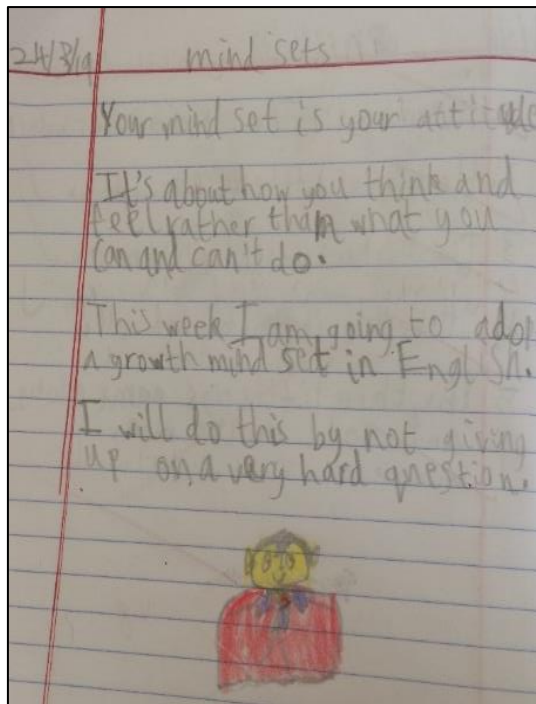 24/3/19 mind sets
Your mind set is your attitude
It's about how you think and
feel rather than what you
can and can't do.
This week I am going to adop
a growth mind set in English.
I will do this by not giving
up on a very hard question.